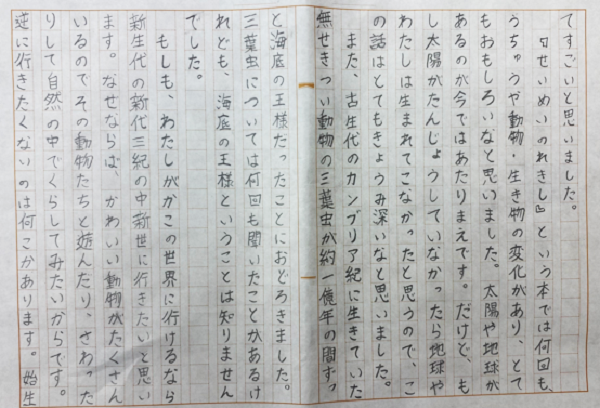 てすごいと思いました。
『せいめいのれきし』という本では何回も、
うちゅうや動物・生き物の変化があり、とて
もおもしろいなと思いました。太陽や地球が
あるのが今ではあたりまえです。だけど、も
し太陽がたんじょうしていなかったら地球や
わたしは生まれてこなかったと思うので、こ
の話はとてもきょうみ深いなと思いました。
また、古生代のカンブリア紀に生きていた
無せきつい動物の三葉虫が約一億年の間ずっ
と海底の王様だったことにおどろきました。
三葉虫については何回も聞いたことがあるけ
れども、海底の王様ということは知りません
でした。
もしも、わたしがこの世界に行けるなら
新生代の新代三紀の中新世に行きたいと思い
ます。なぜならば、かわいい動物がたくさん
いるのでその動物たちと遊んだり、さわった
りして自然の中でくらしてみたいからです。
逆に行きたくないのは何こかあります。始生